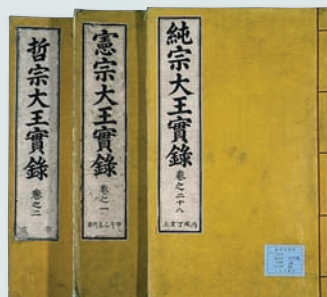 純宗大王實錄 卷之二十八
憲宗大王實錄 卷之一
哲宗大王實錄 卷之二